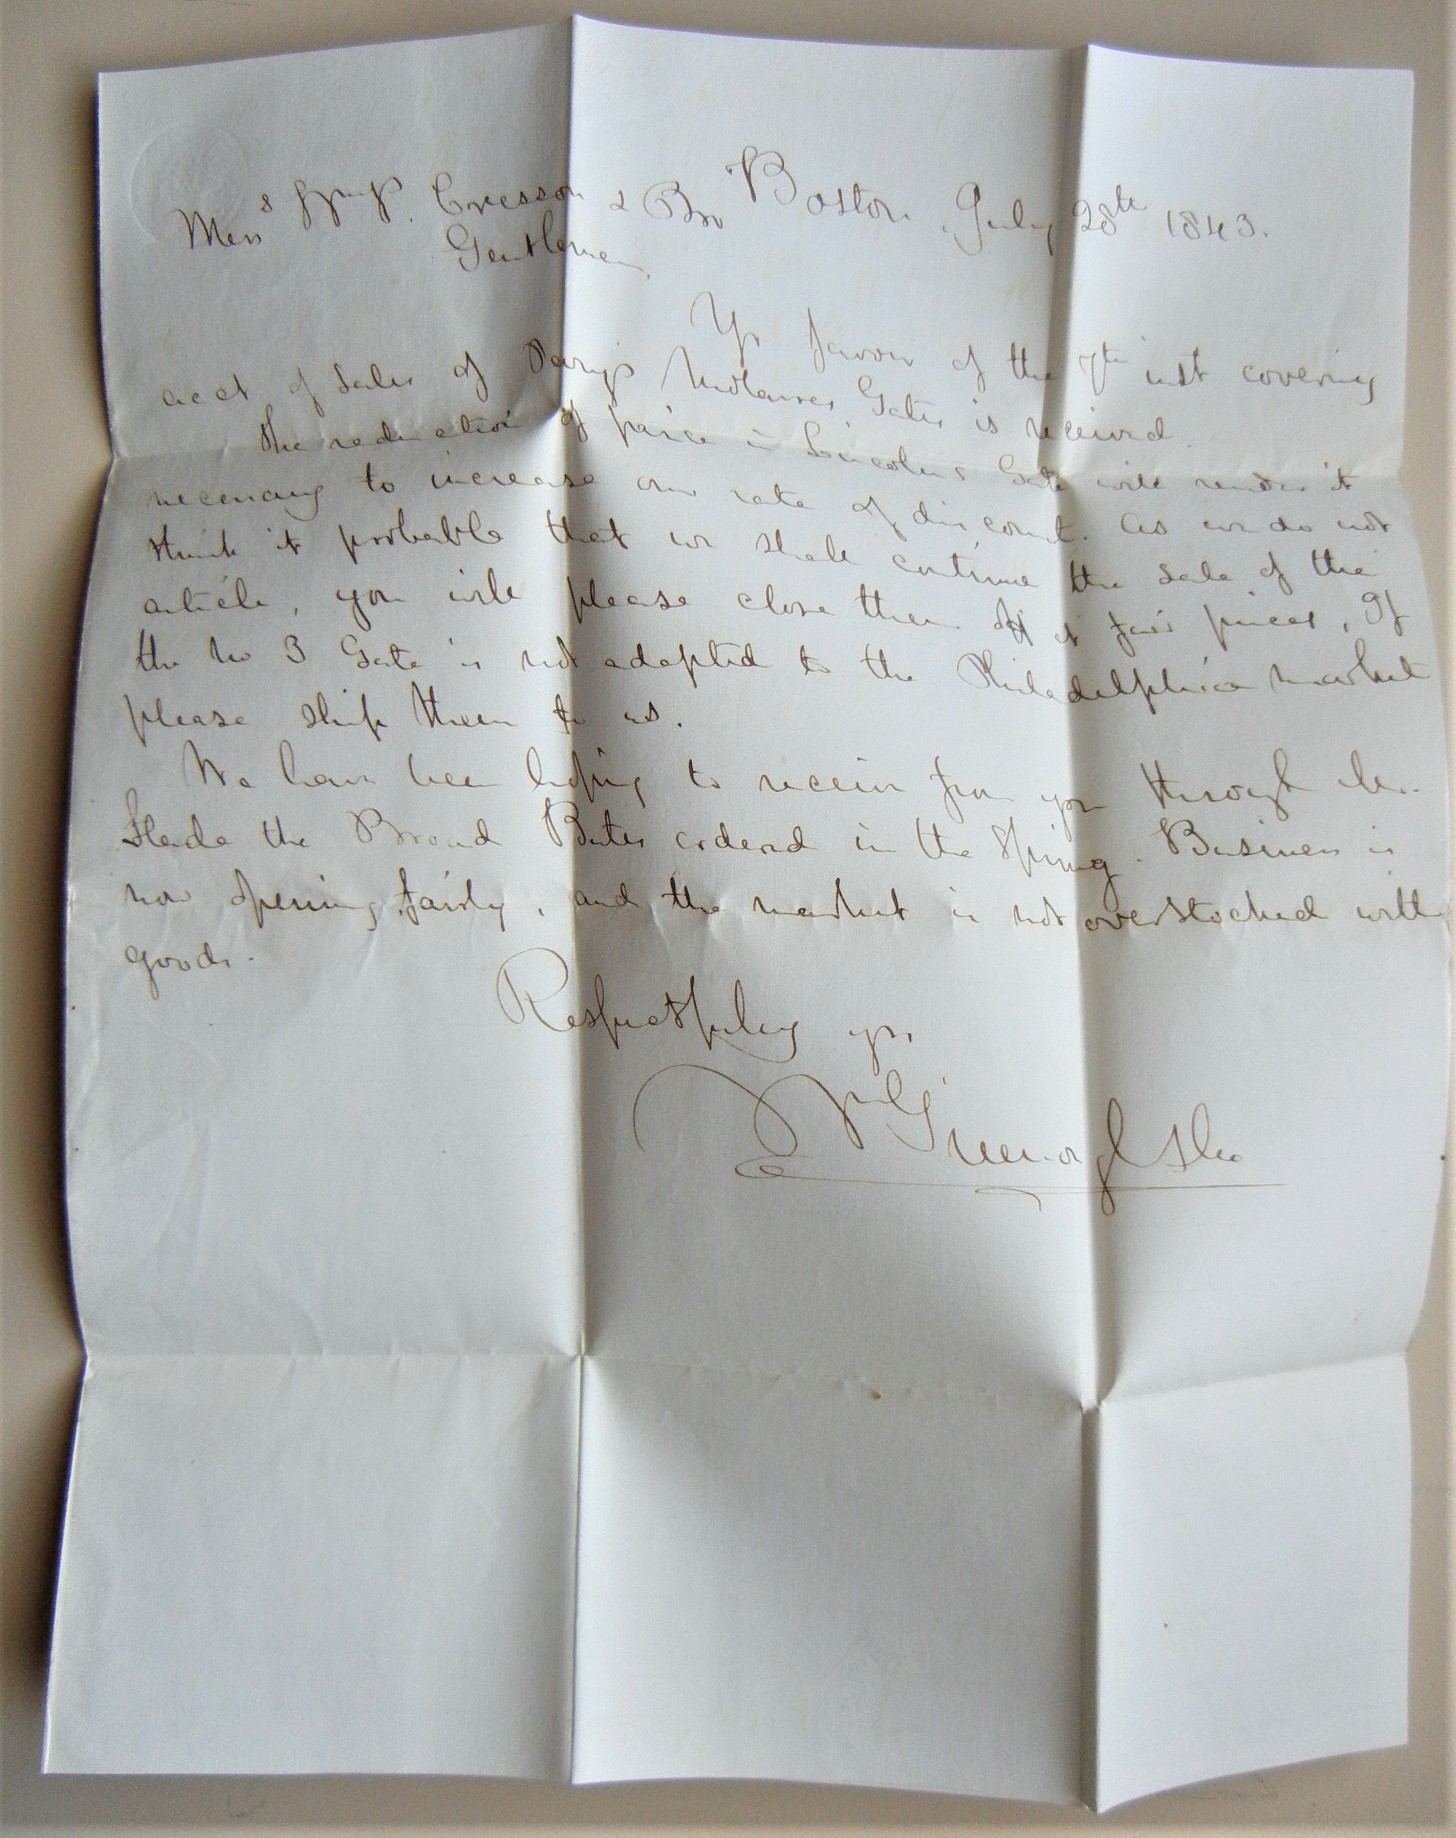 Boston July 28th 1843.
Mess s Cresson & Bro
Gentlemen,
Yr favor of the 7th inst covering
acct of Sales of Molasses Gates is received.
The reduction of price in Lincolns Gate will render it
necessary to increase our rate of discount. As we do not
think it probable that we shall continue the sale of the
article, you will please close them off at fair prices, If
the No 3 Gate is not adapted to the Philadelphia market
please ship them to us.
We have been hoping to receive from you through Mr.
Slade the Broad Butts ordered in the Spring. Business is
now opening fairly, and the market is not overstocked with
goods.
Respectfully yrs,